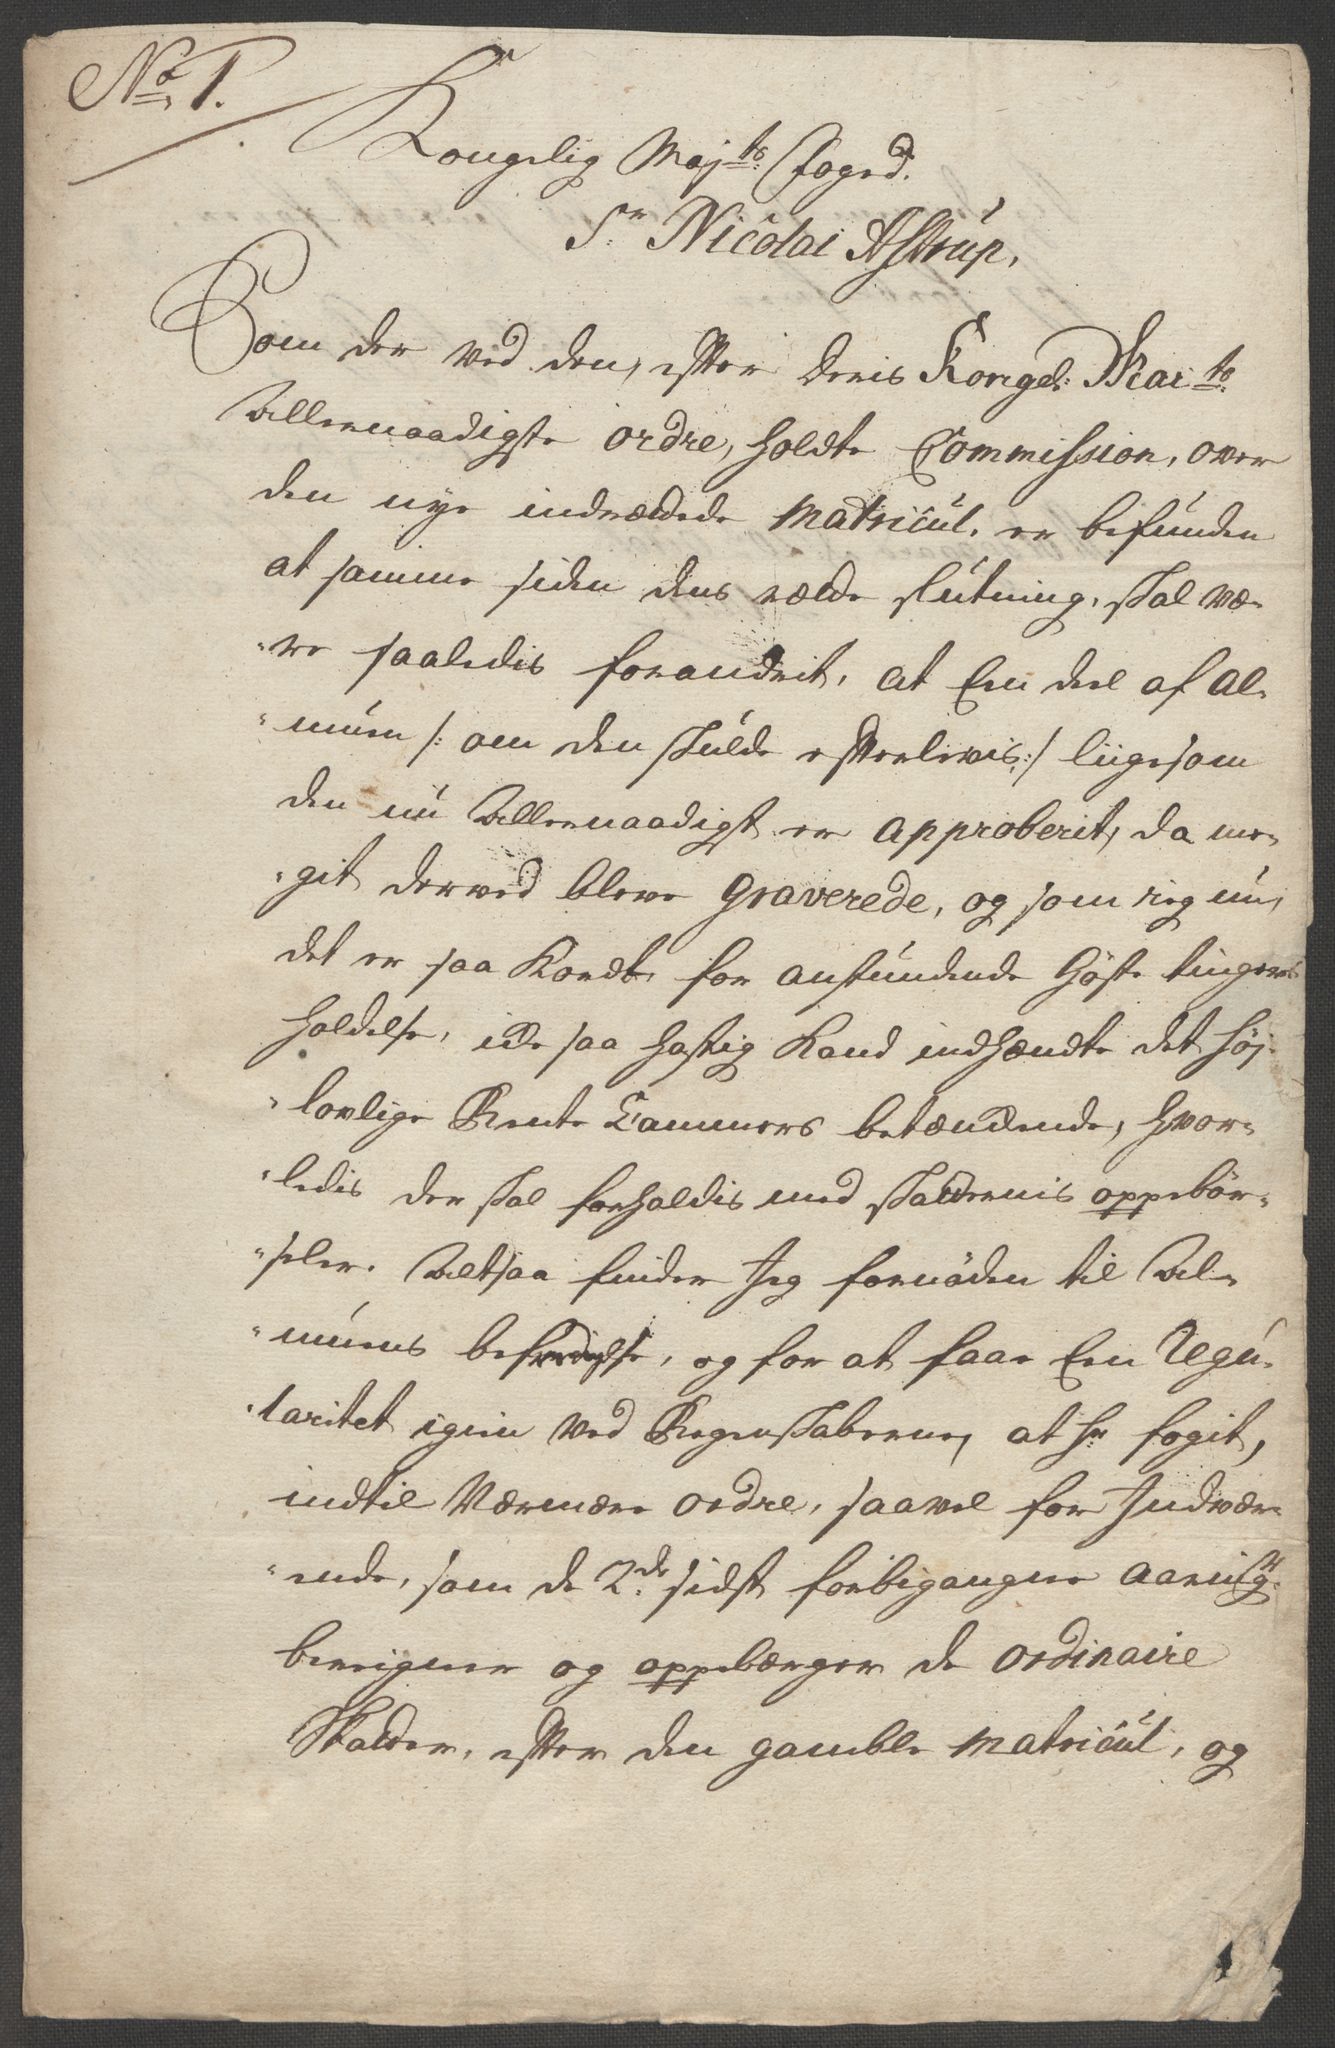 No 1.
Kongelig Maj:ts foged.
Sr. Nicolai Astrup,
Som der ved den, efter deris Kongel: Mai:ts
Allernaadigste ordre, holdte Commission, over
den nye indrættede Matricul, er befunden
at samme siden dens rætte slutning, skal væ-
-re saaledis forandrit, at Een deel af al-
-muen /: om den skulde efterlevis :/ liigesom
den nu Allernaadigst er approberit, da me-
-git derved bleve graverede, og som ieg nu,
det er saa Kordt for anstundende Høste tingenes
holdelse, icke saa hastig Kand indhændte det høy-
-lovlige Rente Cammers betænckende, hvor-
-ledis der skal forholdis med skatternis oppebør-
-seler. Altsaa finder Jeg fornøden til Al-
-muens befredigelse, og for at faae Een Regu-
-laritet igien ved Regenskaberne, at hr fogit,
indtil Nærmere ordre, saavel for Indvær-
-ende, som de 2de sidst forbigangne aaringer
beregner og oppebærger de ordinaire
Skatter, efter den gamble Matricul, og